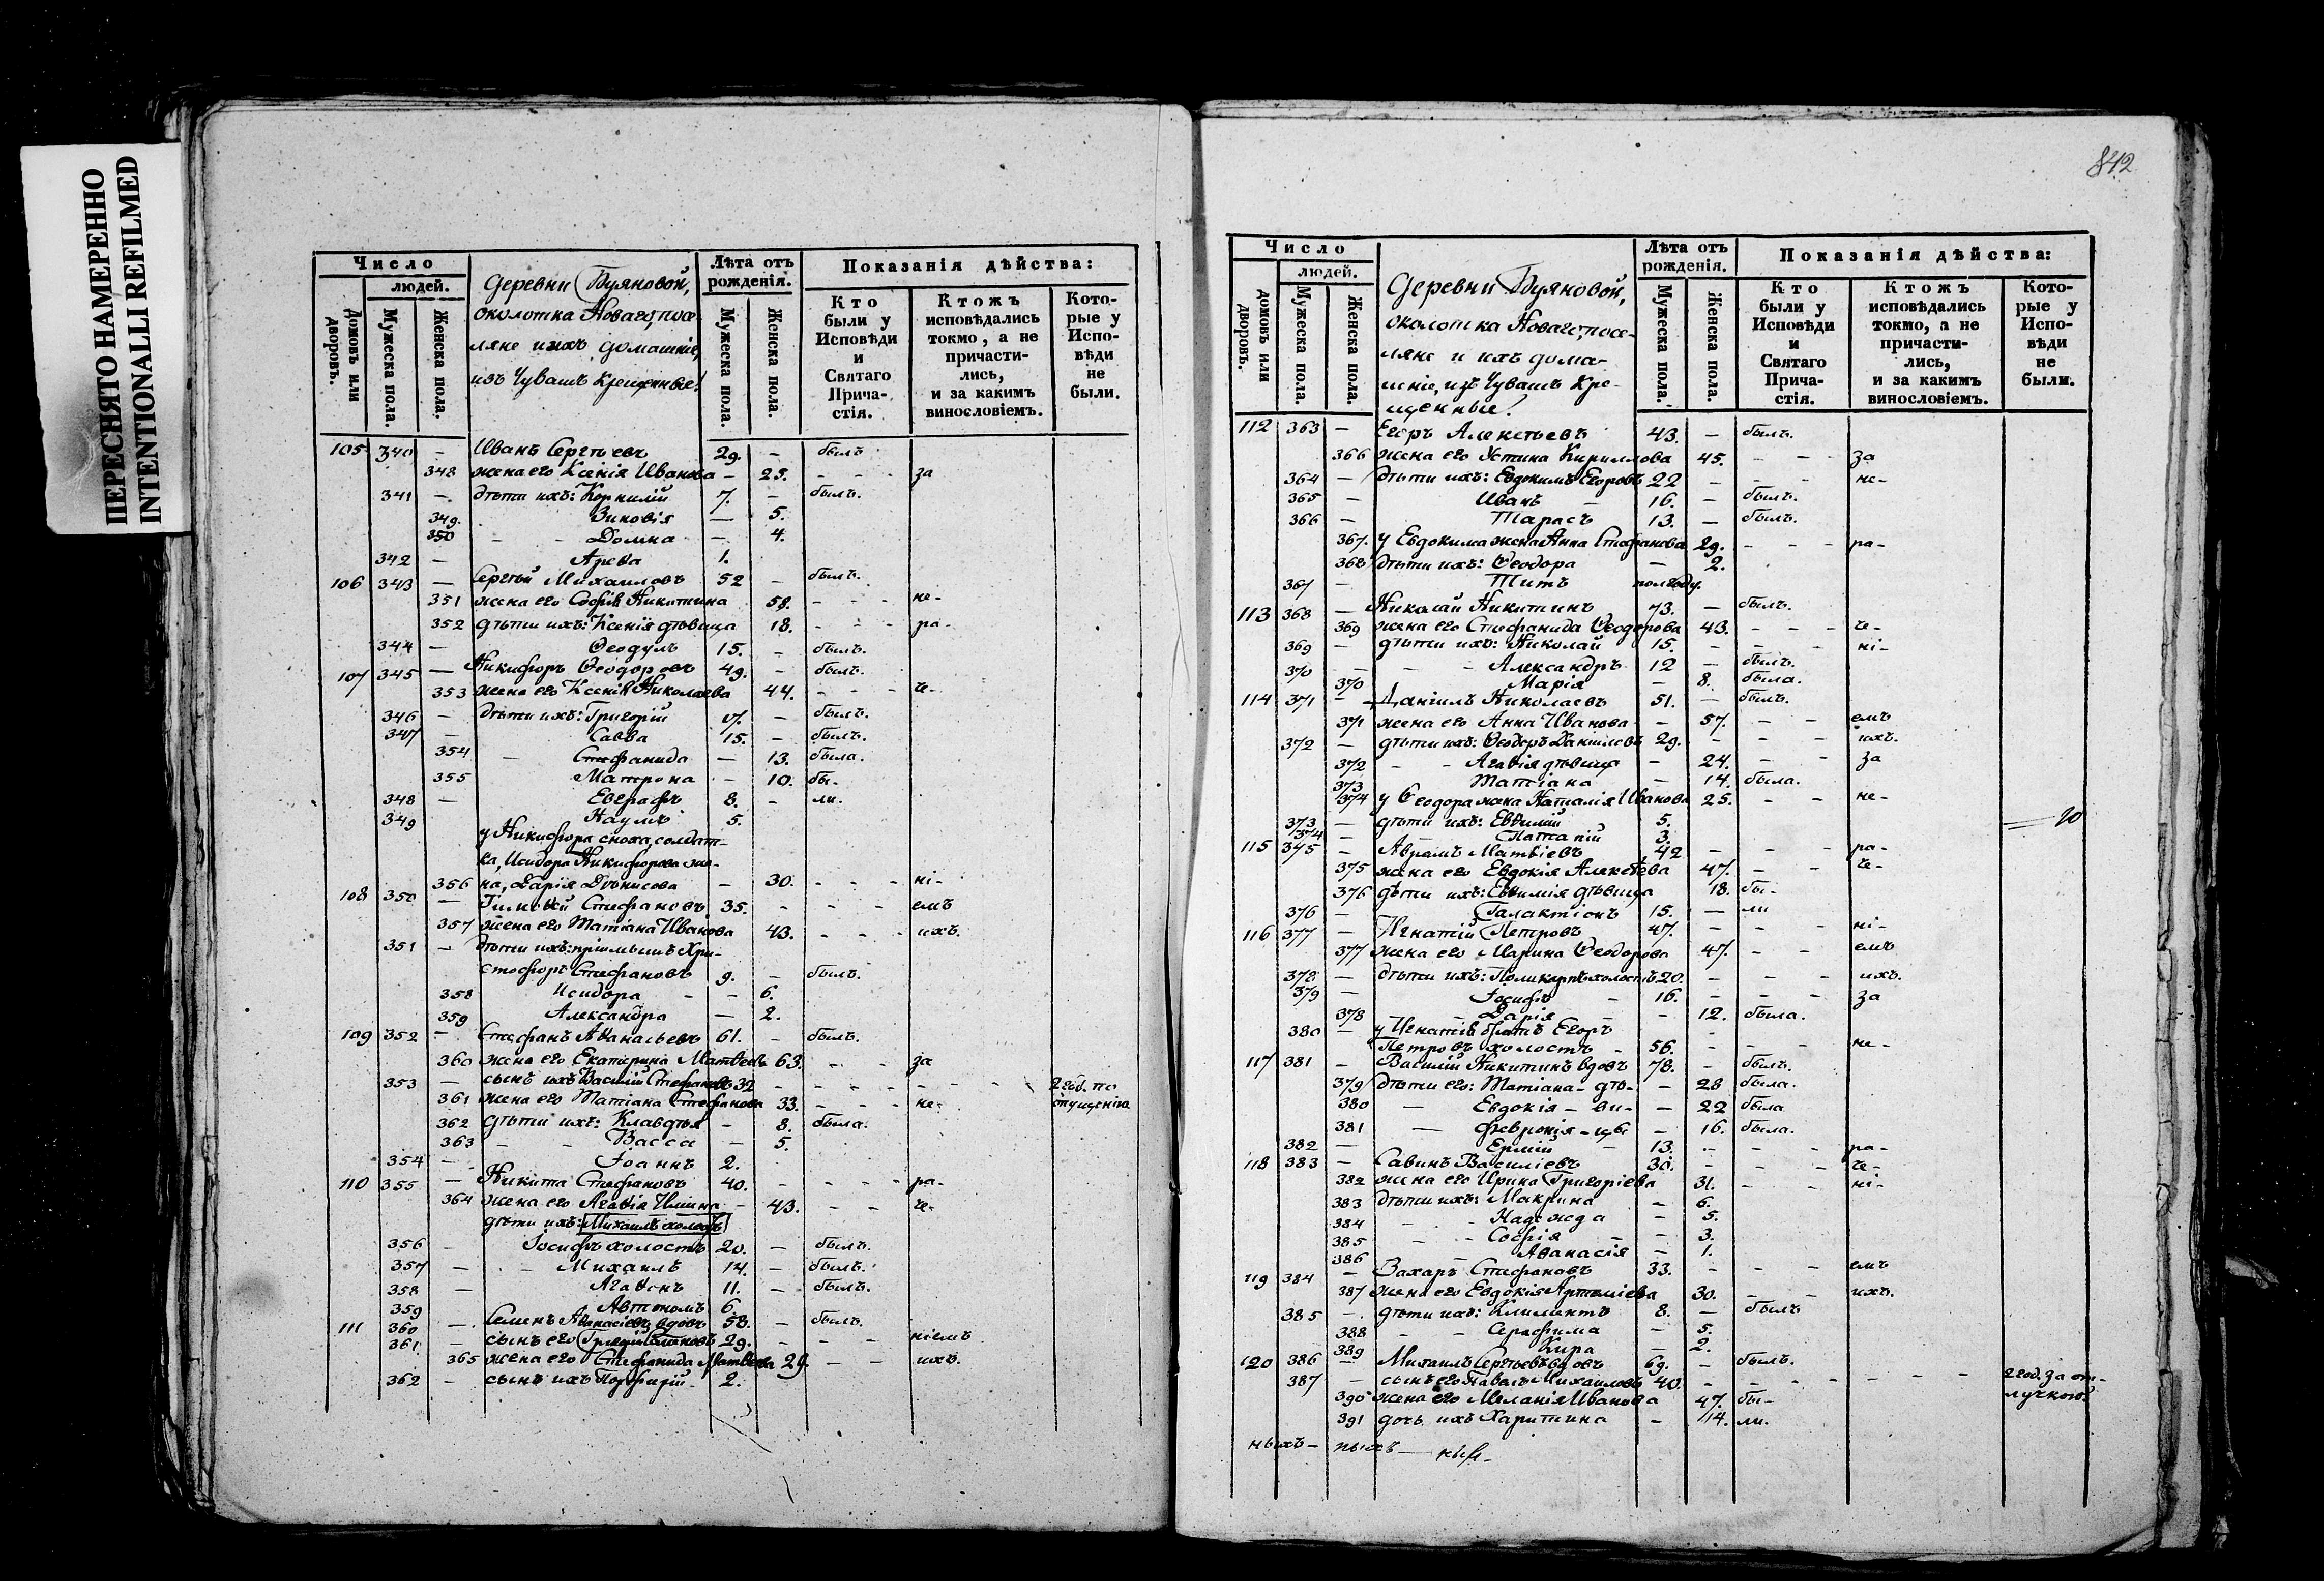 ПЕРЕСНЯТО НАМЕРЕННО
INTENTIONALLI REFILMED
Число
людей.
Домовъ или дворовъ.
Мужеска пола.
Женска пола.
Деревни Буяновой,
околотка Новаго, посе-
ляне и ихъ домашніе,
изъ Чувашъ Крещенные!
Лѣта отъ рожденія.
Мужеска пола.
Женска пола.
Показанія дѣйства:
Кто были у Исповѣди и Святаго Прича- стія.
Ктожъ исповѣдались токмо, а не причасти- лись, и за какимъ винословіемъ.
Кото- рые у Испо- вѣди не были.
105 340 — Иванъ Сергѣевъ 29. — былъ.
348 жена его Ксенія Иванова — 25. - - - за
341 — дѣти ихъ: Корнилій 7. — былъ.
349. Зиновія — 5.
350 - - Домна — 4.
342 — Арефа 1.
106 343 — Сергѣй Михаиловъ 52 — былъ.
351 жена его Софія Никитина 58. - - - не-
352 дѣти ихъ: Ксенія дѣвица 18. - - - ра-
344 — Ѳеодулъ 15. — былъ.
107 345 — Никифоръ Ѳеодоровъ 49. — былъ.
353 жена его Ксенія Николаева 44. - - - че-
346 — дѣти ихъ: Григорій — былъ.
347 — Савва 15. — былъ.
354 — Стефанида — 13. была.
355 Матрона - 10. бы-
348 — Евграфъ 8. - ли.
349 Наумъ 5.
у Никифора сноха, солдат-
ка, Исидора Никифорова же-
356 на, Дарія Дѣнисова — 30. - - - ні-
108 350 — Тимоѳей Стефановъ 35. - - - емъ
357 жена его Татіана Иванова 43. - - - ихъ.
351 — дѣти ихъ: пріимышъ Хри-
стофоръ Стефановъ 9. — былъ.
358 Исидора - - 6.
359 Александра — 2.
109 352 — Стефанъ Аѳанасьевъ 61. - былъ.
360 жена его Екатерина Матѳеева 63. - - за
353 — сынъ ихъ Василій Стефановъ 32 - - - - - - - 2 год. по
361 жена его Татіана Стефанова 33. - - - не- опущенію
362 дѣти ихъ: Клавдія - 8. была.
363 - - Васса — 5.
354 — Іоаннъ 2.
110 355 — Никита Стефановъ 40. - - - - ра-
364 жена его Агаѳія Ильина - 43. - - че-
дѣти ихъ: Михаилъ холостъ
356 - Іосифъ холостъ 20. — былъ.
357 — - Михаилъ 14. — былъ.
358 — Агаѳонъ 11. - былъ.
359 Автономъ 6.
111 360 — Семенъ Аѳанасіевъ вдовъ 58. — былъ.
361 — сынъ его 29. - - - ніемъ
365 жена его Стефанида Матвѣева 29. - - ихъ.
362 — сынъ ихъ Порфирій 2.
842
Число
людей.
Домовъ или дворовъ.
Мужеска пола.
Женска пола.
Деревни Буяновой,
околотка Новаго, посе-
ляне и ихъ дома-
шніе, изъ Чувашъ Кре-
щенные!
Лѣта отъ рожденія.
Мужеска пола.
Женска пола.
Показанія дѣйства:
Кто были у Исповѣди и Святаго Прича- стія.
Ктожъ исповѣдались токмо, а не причасти- лись, и за какимъ винословіемъ.
Кото- рые у Испо- вѣди не были.
112 363 — Егоръ Алексѣевъ 43. — былъ.
366 жена его Устина Кириллова 45. - - - за
364 — дѣти ихъ: Евдокимъ Егоровъ 22 - - - не-
365 — Иванъ — 16. — былъ.
366 — Тарасъ 13. — былъ.
367. у Евдокима жена Анна Стефанова 29. - - - ра-
368 дѣти ихъ: Ѳеодора — 2.
367 — Титъ полгоду.
113 368 — Николай Никитинъ 73. — былъ.
369 жена его Стефанида Ѳеодорова 43. - - - че-
369 — дѣти ихъ: Николай 15. - - - ні-
370 — - - Александръ 12 — былъ.
370 Марія — 8. была.
114 371 — Даніилъ Николаевъ 51. — былъ.
371 жена его Анна Иванова - 57. - - емъ
372 — дѣти ихъ: Ѳеодоръ Даніиловъ 29. - - - ихъ.
372 - - Агаѳія дѣвица - 24. - - за
373 Татіана — 14. была.
374 у Ѳеодора жена Наталія Иванова 25. - - не-
373 — дѣти ихъ: Евѳимій 5.
20
374 — Потапій 3.
115 345 — Аврамъ Матвіевъ 42 - - - ра-
375 жена его Евдокія Алексѣева 47. - - че-
376 дѣти ихъ: Евѳимія дѣвица 18. бы-
376 — Галактіонъ 15. — ли
116 377 — Игнатій Петровъ 47. - - - ні-
377 жена его Марина Ѳеодорова 47. - - емъ
378 — дѣти ихъ: Поликарпъ холостъ 20. - - - ихъ.
379 — Іосифъ - 16. - - - за
378 - Дарія - - 12. была.
380 — у Игнатія братъ Егоръ
Петровъ холостъ - 56. - - - не-
117 381 — Василій Никитинъ вдовъ 78. - былъ.
379 дѣти его: Татіана - дѣ- — 28 была.
380 — Евдокія - ви- — 22 была
381 — Февронія - цы — 16. была.
382 — Ермій - 13. - - - ра-
118 383 — Савинъ Василіевъ 30. - - - че-
382 жена его Ирина Григоріева 31. - - ні-
383 дѣти ихъ: Макрина — 6.
384 - - Надежда — 5.
385 - - Софія - 3.
386 - Аѳанасія — 1.
119 384 — Захаръ Стефановъ 33. - - - емъ
387 жена его Евдокія Артеміева 30. - - ихъ.
385 — дѣти ихъ: Климентъ 8. — былъ
388 - - Серафима — 5.
389 Кира — 2.
120 386 — Михаилъ Сергѣевъ вдовъ 69. — былъ.
387 — сынъ его Павелъ Михаиловъ 40. - - - - - - - 2 год. за от-
390 жена его Меланія Иванова 47. бы- лучкою.
391 дочь ихъ Харитина — 14. ли.
ныхъ —